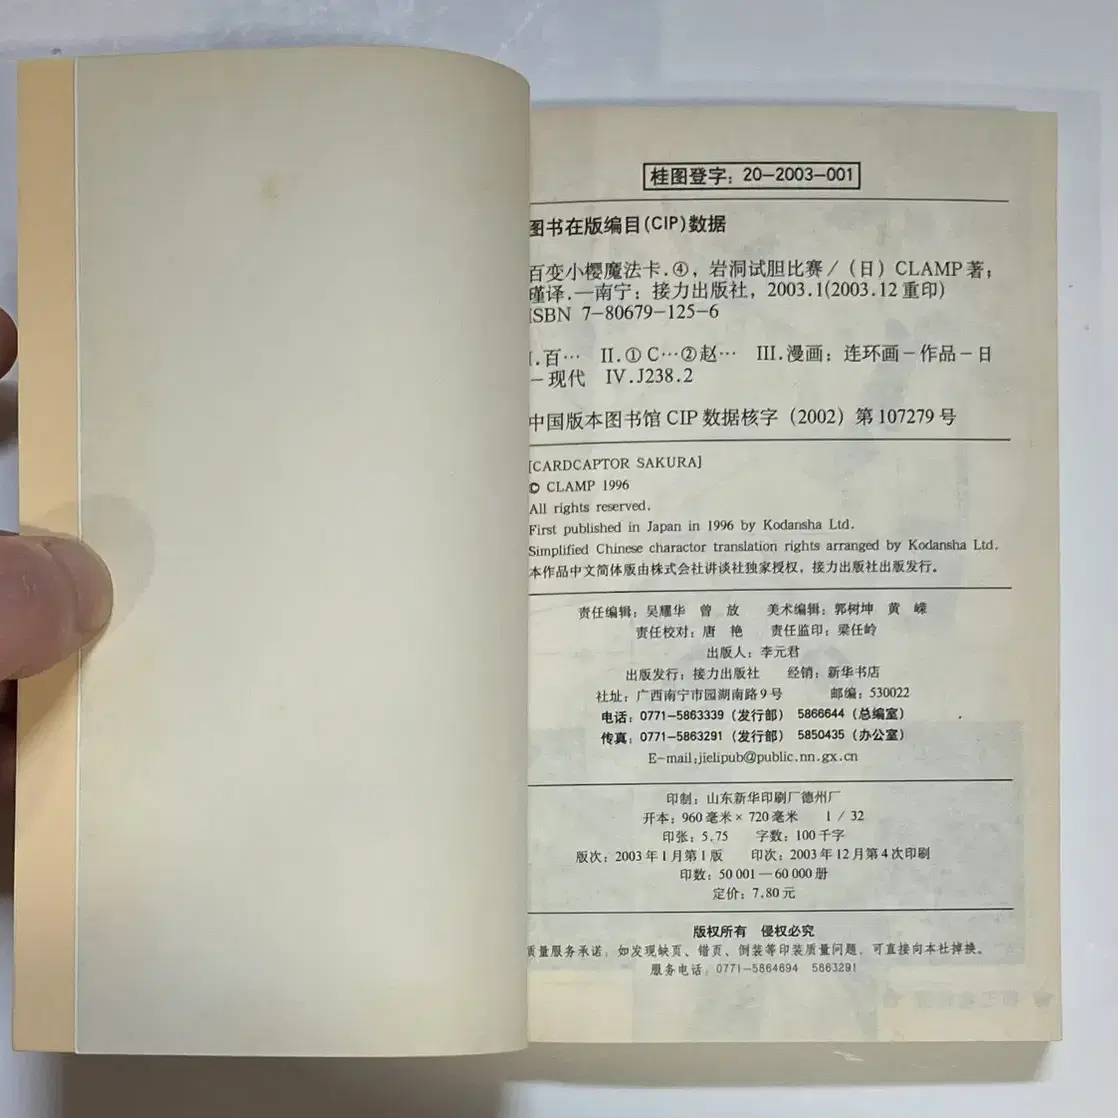 桂图登字：20－2003－001
图书在版编目(CIP)数据
百变小樱魔法卡.④，岩洞试胆比赛／（日）CLAMP著；
瑾译.—南宁：接力出版社，2003.1(2003.12重印)
ISBN 7－80679－125－6
Ⅰ.百… Ⅱ.①C…②赵… Ⅲ.漫画：连环画－作品－日
－现代 Ⅳ.J238.2
中国版本图书馆CIP数据核字（2002）第107279号
[CARDCAPTOR SAKURA]
© CLAMP 1996
All rights reserved.
First published in Japan in 1996 by Kodansha Ltd.
Simplified Chinese charactor translation rights arranged by Kodansha Ltd.
本作品中文简体版由株式会社讲谈社独家授权，接力出版社出版发行。
责任编辑：吴耀华 曾 放 美术编辑：郭树坤 黄 嵘
责任校对：唐 艳 责任监印：梁任岭
出版人：李元君
出版发行：接力出版社 经销：新华书店
社址：广西南宁市园湖南路9号 邮编：530022
电话：0771－5863339（发行部） 5866644（总编室）
传真：0771－5863291（发行部） 5850435（办公室）
E－mail:jielipub@public.nn.gx.cn
印制：山东新华印刷厂德州厂
开本：960毫米×720毫米 1／32
印张：5.75 字数：100千字
版次：2003年1月第1版 印次：2003年12月第4次印刷
印数：50 001—60 000册
定价：7.80元
版权所有 侵权必究
质量服务承诺：如发现缺页、错页、倒装等印装质量问题，可直接向本社掉换。
服务电话：0771－5864694 5863291